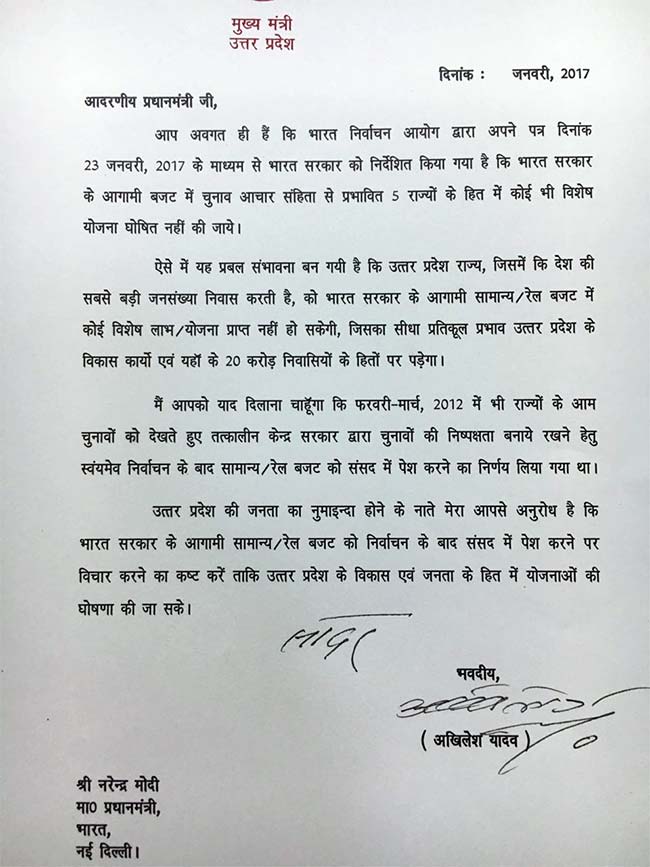 मुख्य मंत्री
उत्तर प्रदेश
दिनांक : जनवरी, 2017
आदरणीय प्रधानमंत्री जी,
आप अवगत ही हैं कि भारत निर्वाचन आयोग द्वारा अपने पत्र दिनांक
23 जनवरी, 2017 के माध्यम से भारत सरकार को निर्देशित किया गया है कि भारत सरकार
के आगामी बजट में चुनाव आचार संहिता से प्रभावित 5 राज्यों के हित में कोई भी विशेष
योजना घोषित नहीं की जाये।
ऐसे में यह प्रबल संभावना बन गयी है कि उत्तर प्रदेश राज्य, जिसमें कि देश की
सबसे बड़ी जनसंख्या निवास करती है, को भारत सरकार के आगामी सामान्य/रेल बजट में
कोई विशेष लाभ/योजना प्राप्त नहीं हो सकेगी, जिसका सीधा प्रतिकूल प्रभाव उत्तर प्रदेश के
विकास कार्यो एवं यहॉ के 20 करोड़ निवासियों के हितों पर पड़ेगा।
मैं आपको याद दिलाना चाहूॅगा कि फरवरी-मार्च, 2012 में भी राज्यों के आम
चुनावों को देखते हुए तत्कालीन केन्द्र सरकार द्वारा चुनावों की निष्पक्षता बनाये रखने हेतु
स्वंयमेव निर्वाचन के बाद सामान्य/रेल बजट को संसद में पेश करने का निर्णय लिया गया था।
उत्तर प्रदेश की जनता का नुमाइन्दा होने के नाते मेरा आपसे अनुरोध है कि
भारत सरकार के आगामी सामान्य/रेल बजट को निर्वाचन के बाद संसद में पेश करने पर
विचार करने का कष्ट करें ताकि उत्तर प्रदेश के विकास एवं जनता के हित में योजनाओं की
घोषणा की जा सके।
सादर
भवदीय,
( अखिलेश यादव )
श्री नरेन्द्र मोदी
मा0 प्रधानमंत्री,
भारत,
नई दिल्ली।